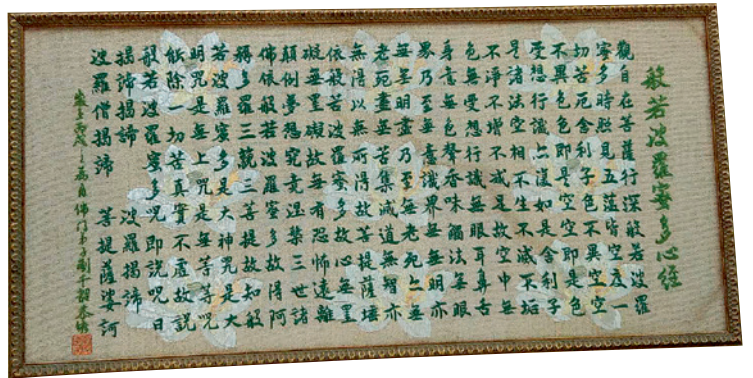 般若波羅蜜多心經
觀自在菩薩行深般若波羅
蜜多時照見五蘊皆空度一
切苦厄舍利子色不異空空
不異色色即是空空即是色
受想行識亦復如是舍利子
是諸法空相不生不滅不垢
不淨不增不減是故空中無
色無受想行識無眼耳鼻舌
身意無色聲香味觸法無眼
界乃至無意識界無無明亦
無無明盡乃至無老死亦無
老死盡無苦集滅道無智亦
無得以無所得故菩提薩埵
依般若波羅蜜多故心無罣
礙無罣礙故無有恐怖遠離
顛倒夢想究竟涅槃三世諸
佛依般若波羅蜜多故得阿
耨多羅三藐三菩提故知般
若波羅蜜多是大神咒是大
明咒是無上咒是無等等咒
能除一切苦真實不虛故說
般若波羅蜜多咒即說咒曰
揭諦揭諦 波羅揭諦
波羅僧揭諦 菩提薩婆訶
佛門弟子劉千